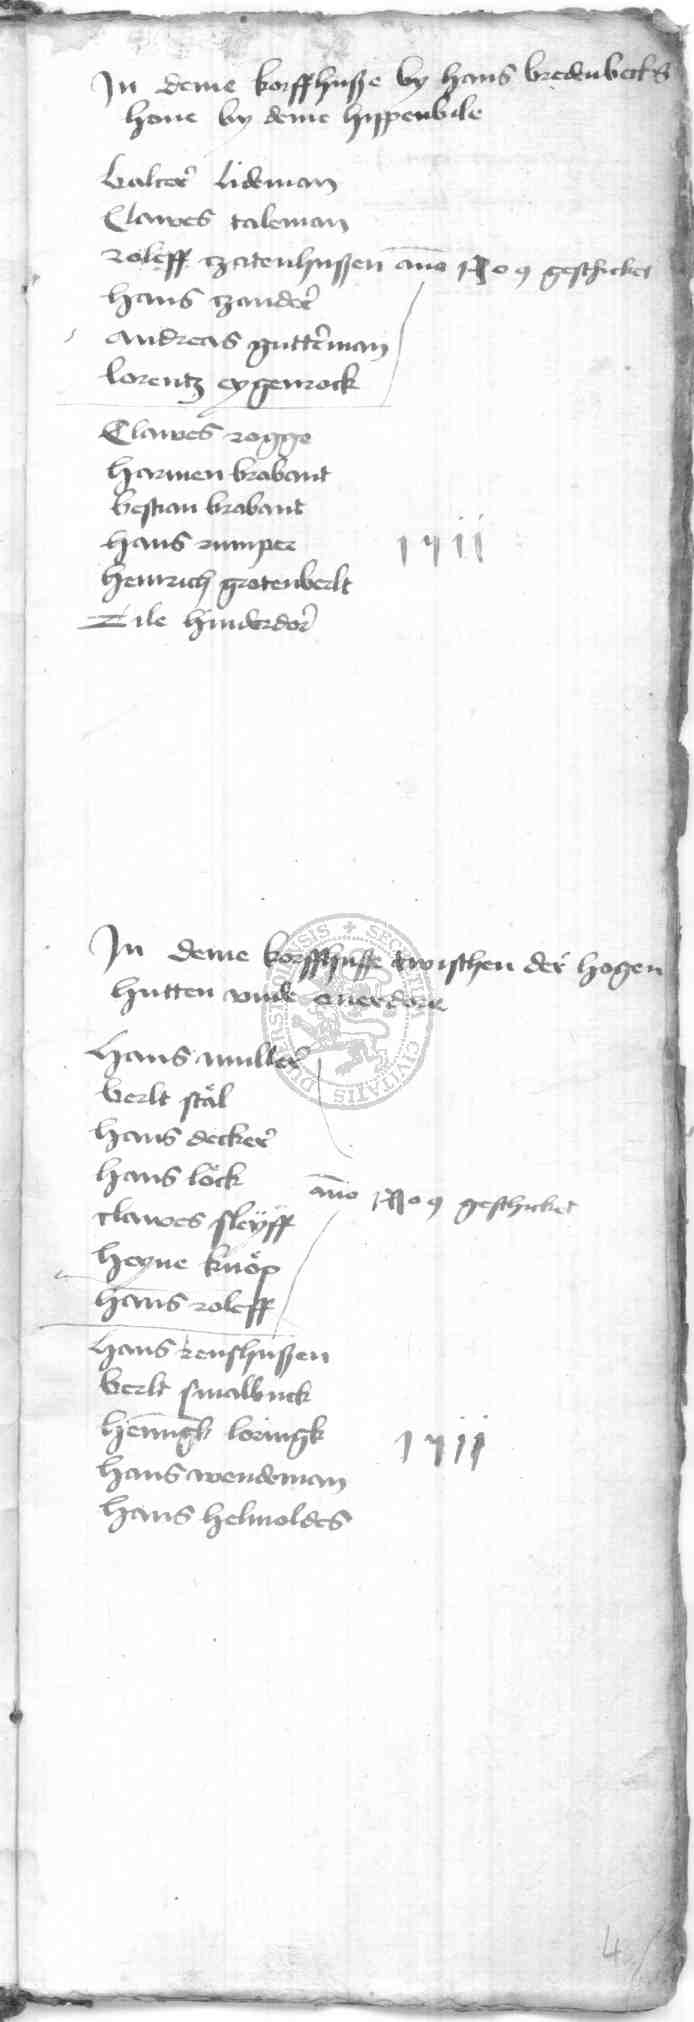 In deme korffhusze by hans bredenbeks
houe by deme hippenbile
Valter lideman
Clawes taleman
roleff czatenhuszen anno 1509 geschicket
hans czander
andreas gutterman
lorentz eygenrock
Clawes rogge
harmen brabant
bestian brabant
hans rumper
heinrich grotenberlt
Tile hinderdor
In deme korffhusse twisschen der hogen
hutten vnde
SECRETVM CIVITATIS
hans muller
berlt stal
hans decker
hans lock
anno 1509 geschicket
clawes sleyff
heyne knop
hans roleff
hans renshuszen
berlt smalbuck
hennigk loringk
hans wendeman
hans helmoldes
4